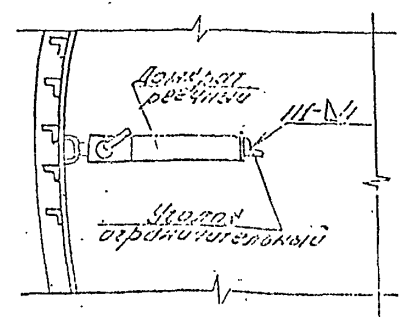 Домкрат
реечный
Уголок
ограничительный